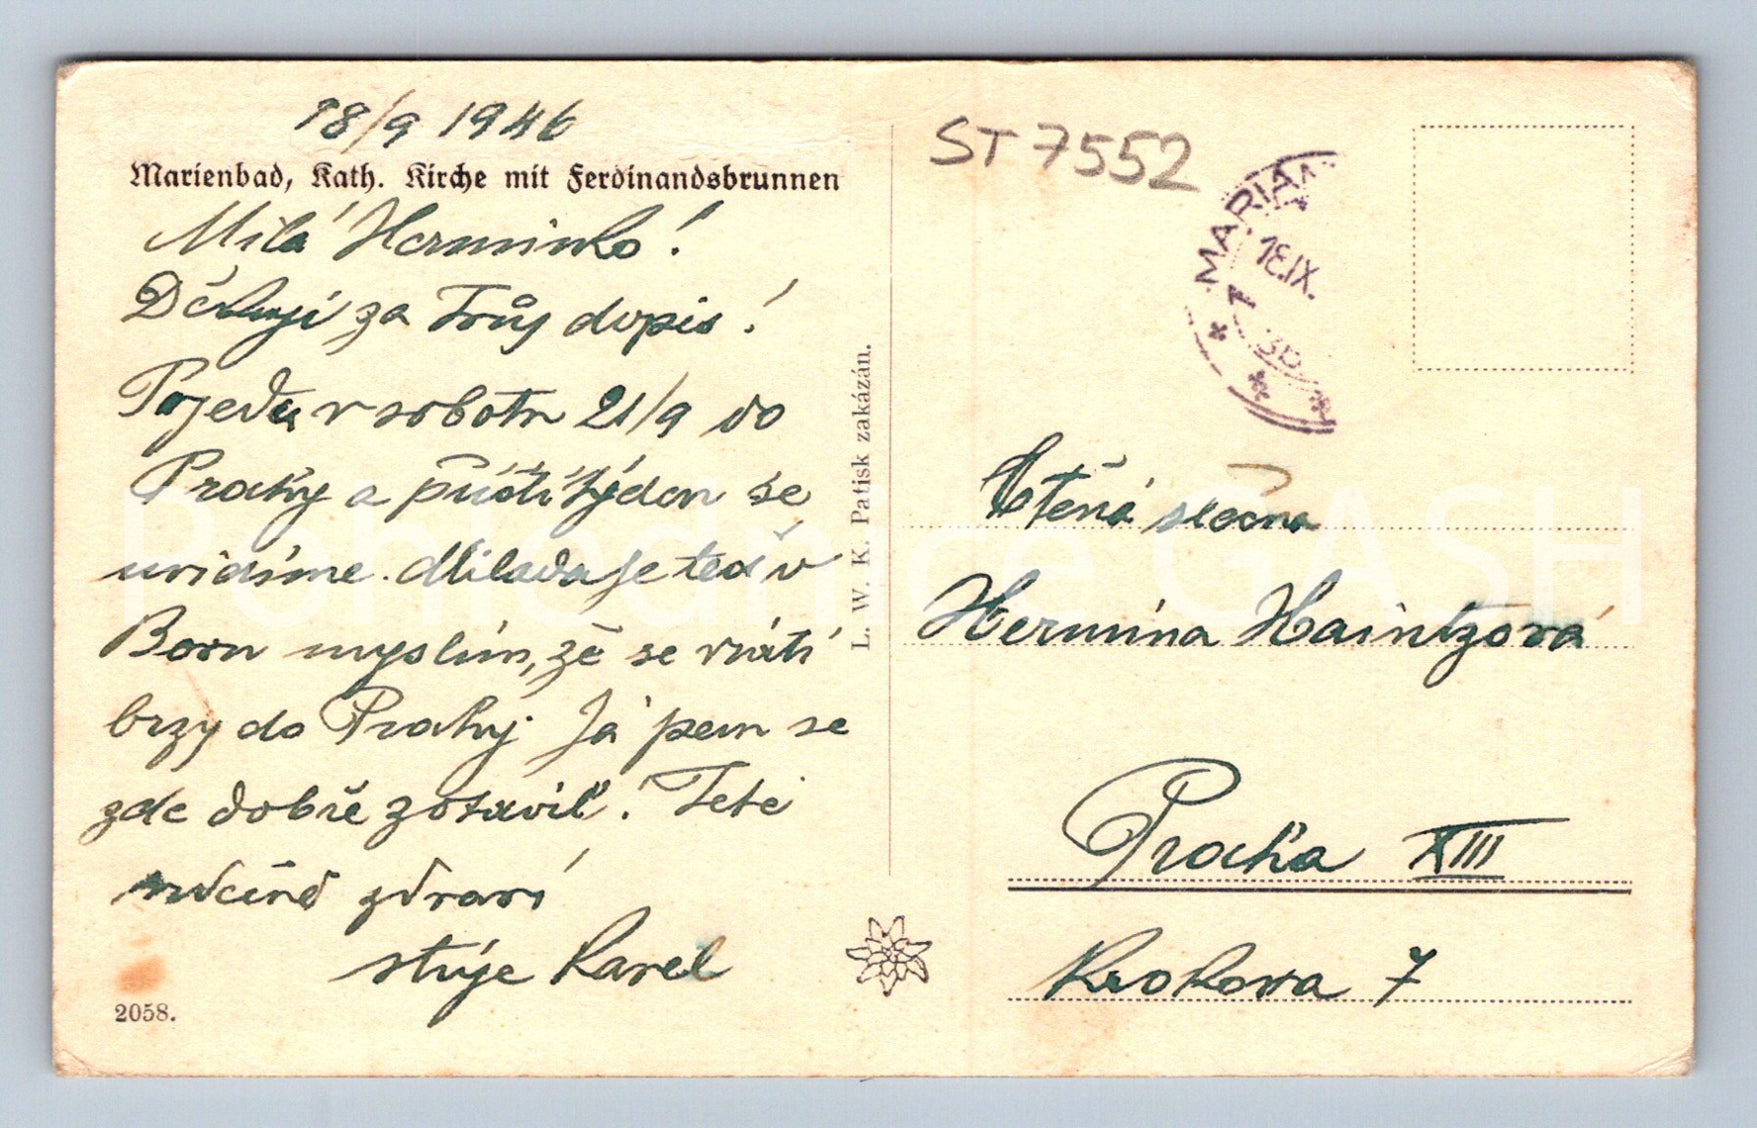 18/9 1946
Marienbad, Kath. Kirche mit Ferdinandsbrunnen
Milá Herminko!
Děkuji za Tvůj dopis!
Pojedu v sobotu 21/9 do
Prahy a příští týden se
uvidíme. Milada je teď v
Brnu myslím, že se vrátí
brzy do Prahy. Já jsem se
zde dobře zotavil! Tebe
srdečně zdraví
strýc Karel
2058.
L. W. K. Patisk zakázán.
ST 7552
MARIÁN
18.IX.
Ctěná slečna
Hermína Haintzová
Praha XIII
Krokova 7
Pohlednice CASH